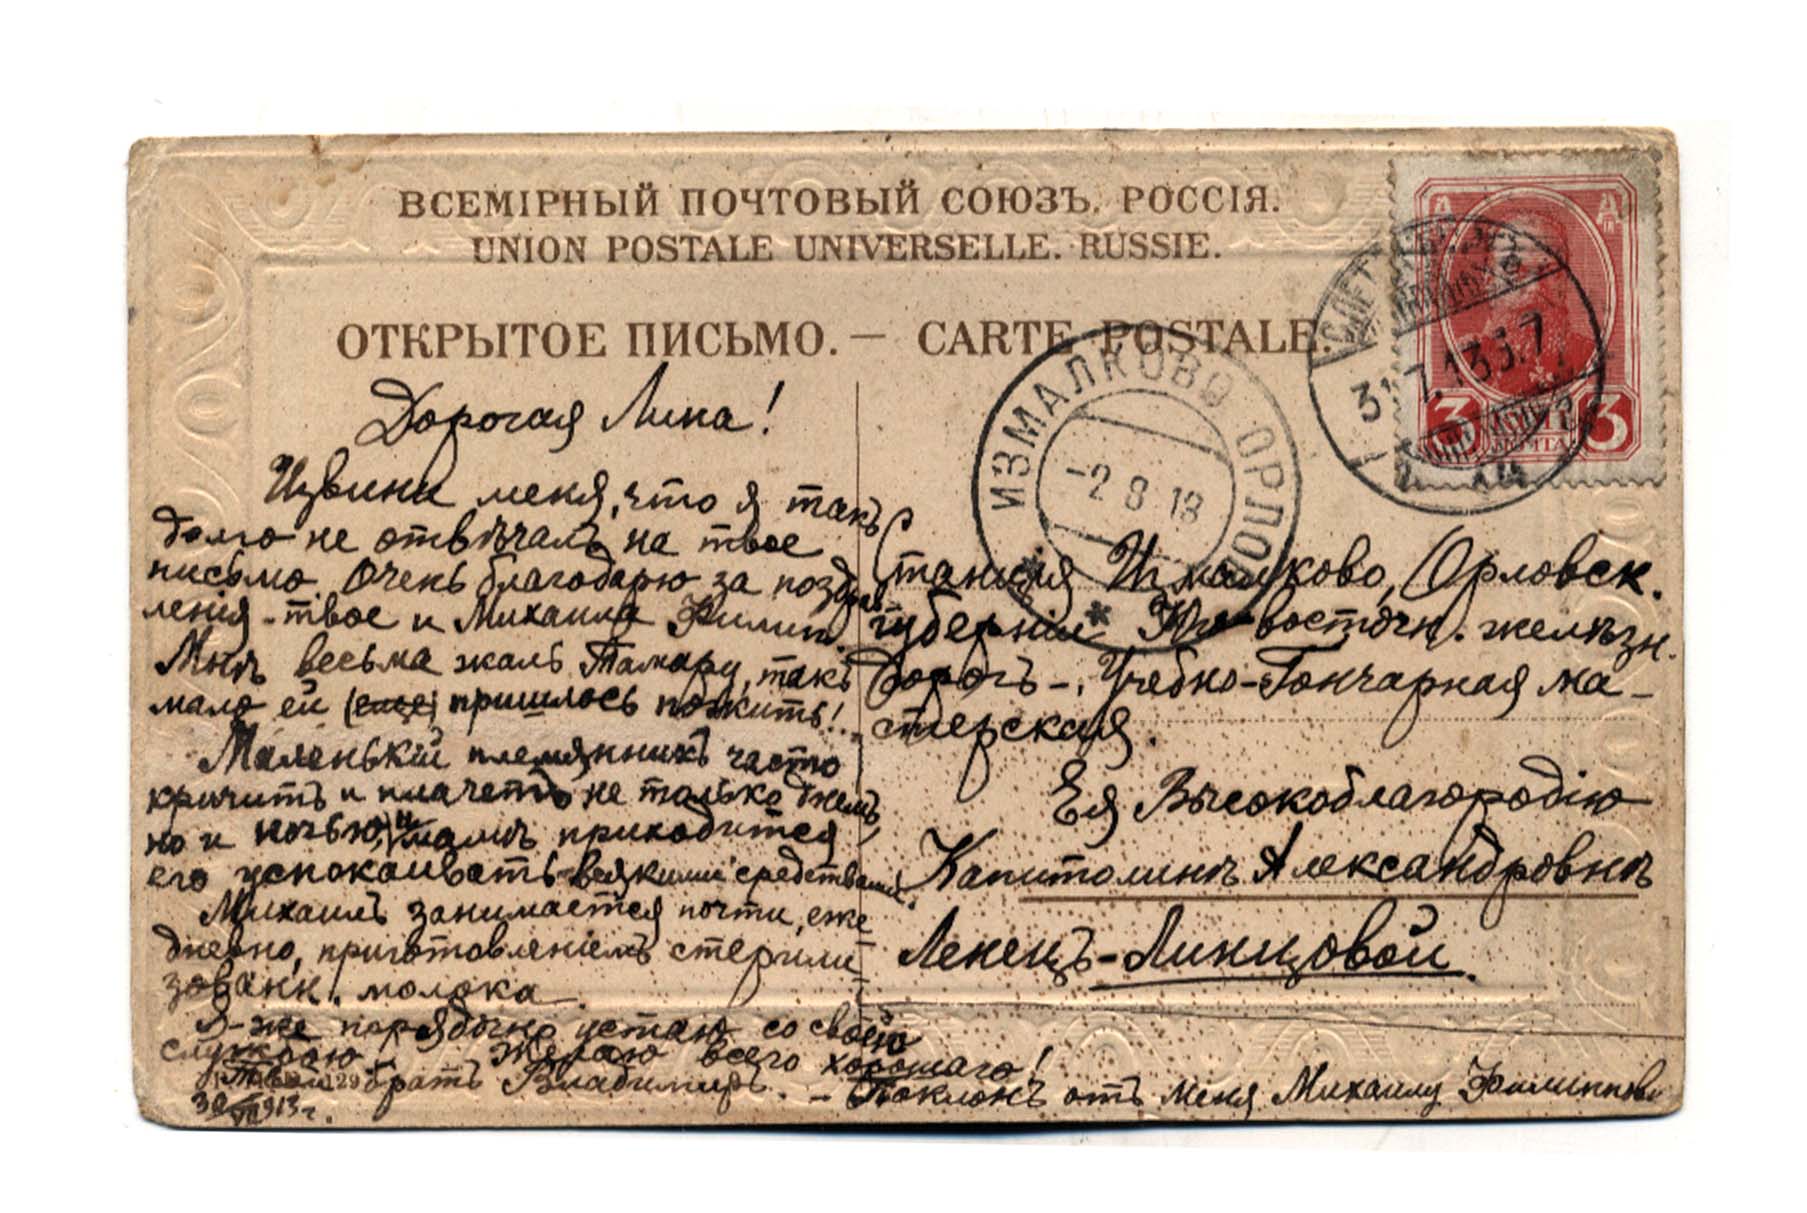 ВСЕМІРНЫЙ ПОЧТОВЫЙ СОЮЗЪ. РОССІЯ.
UNION POSTALE UNIVERSELLE. RUSSIE.
ОТКРЫТОЕ ПИСЬМО. — CARTE POSTALE.
Дорогая Лина!
Извини меня, что я такъ
долго не отвѣчалъ на твое
письмо. Очень благодарю за поздрав
ленія – твое и Михаила Филип.
Мнѣ весьма жаль Тамару, такъ
мало ей (еще) пришлось пожить!
Маленькій племянникъ часто
кричитъ и плачетъ не только днемъ,
но и ночью, и мамѣ приходится
его успокаивать всякими средствами.
Михаилъ занимается почти еже
дневно, приготовленіемъ стерили-
зованн. молока.
Я-же порядочно устаю со своею
службою. – Желаю всего хорошаго!
Твой братъ Владимиръ. – Поклонъ отъ меня Михаилу Филиппови
30/VII 913 г.
ИЗМАЛКОВО ОРЛОВ
-2 8 13
31.7.13
3 3
ПОЧТА
Станція Измалково, Орловск.
губерніи Юго-восточн. желѣзн.
дорогъ –. Учебно-Гончарная ма-
стерская.
Ея Высокоблагородію
Капитолинѣ Александровнѣ
Ленецъ-Линцовой.